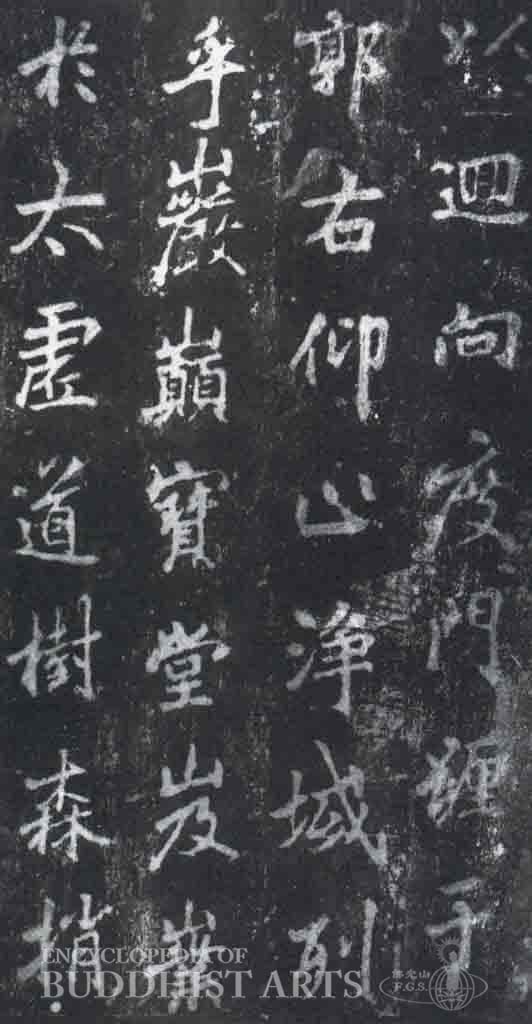 以迴向度門躔于
郭右仰止淨域列
乎巖巔寶堂岌嶪
於太虛道樹森梢
ENCYCLOPEDIA OF
BUDDHIST ARTS
佛光山
F.G.S.